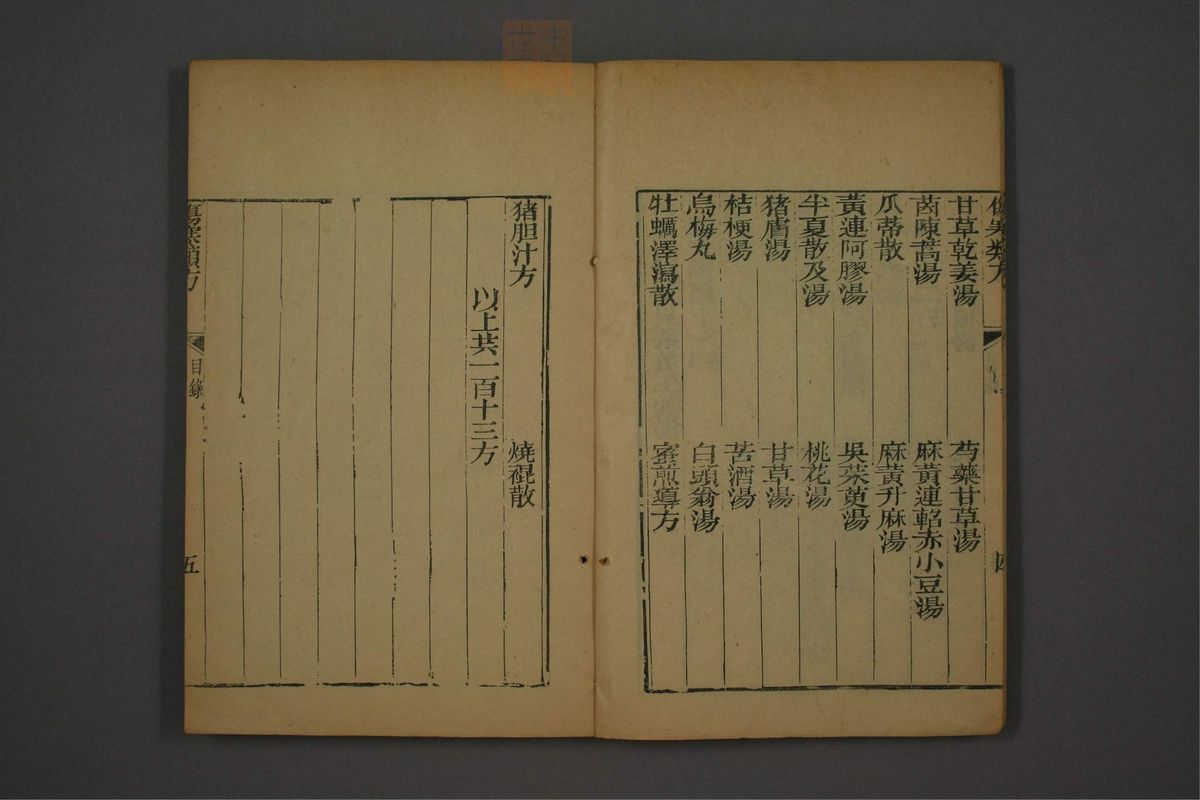 傷寒類方
四
甘草乾姜湯
芍藥甘草湯
茵陳蒿湯
麻黃連軺赤小豆湯
瓜蒂散
麻黃升麻湯
黃連阿膠湯
吳茱萸湯
半夏散及湯
桃花湯
猪膚湯
甘草湯
桔梗湯
苦酒湯
烏梅丸
白頭翁湯
牡蠣澤瀉散
蜜煎導方
猪胆汁方
燒裩散
以上共一百十三方
傷寒類方
目錄
五